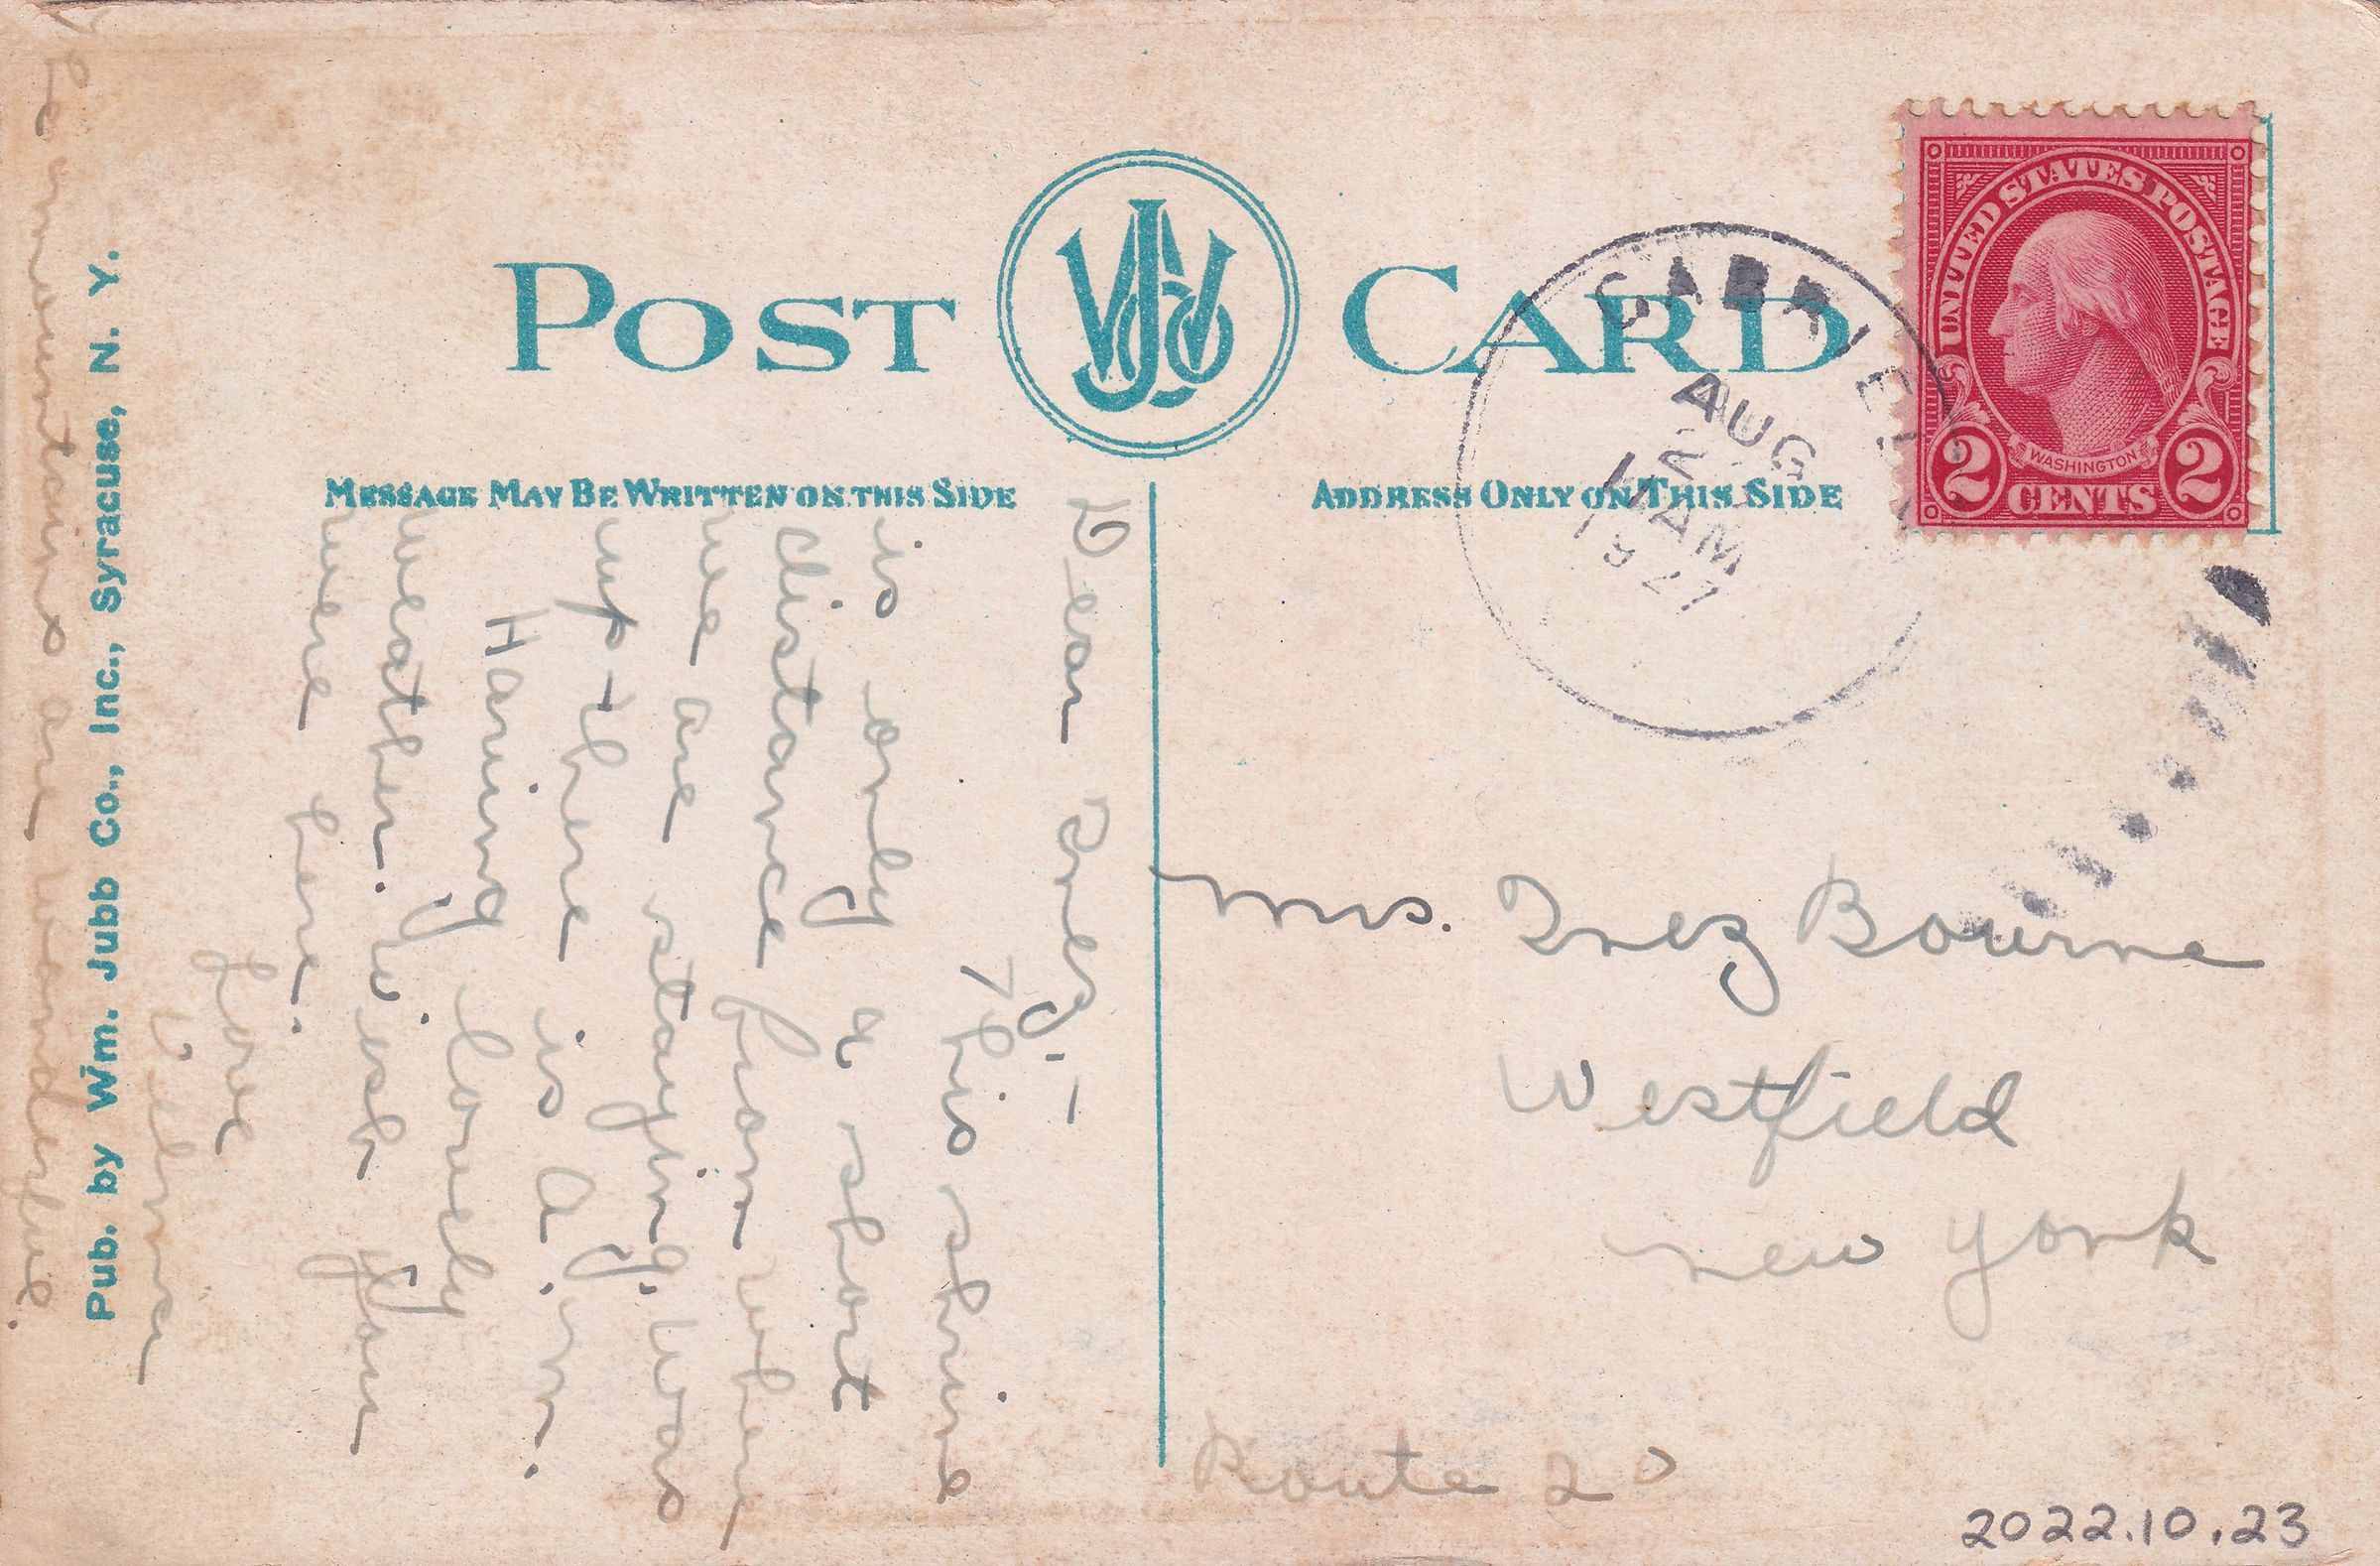 POST CARD
MESSAGE MAY BE WRITTEN ON THIS SIDE
ADDRESS ONLY ON THIS SIDE
UNITED STATES POSTAGE
WASHINGTON
2 CENTS 2
GABRIEL
AUG
AM
1927
Dear Inez:-
This shrine
is only a short
distance from where
we are staying. Was
up there is A.m.
Having lovely
weather. Wish you
were here.
Love
Velma
The mountains are wonderful.
Pub. by Wm. Jubb Co., Inc., Syracuse, N. Y.
Mrs. Inez Bourne
Westfield
New York
Route 20
2022.10.23